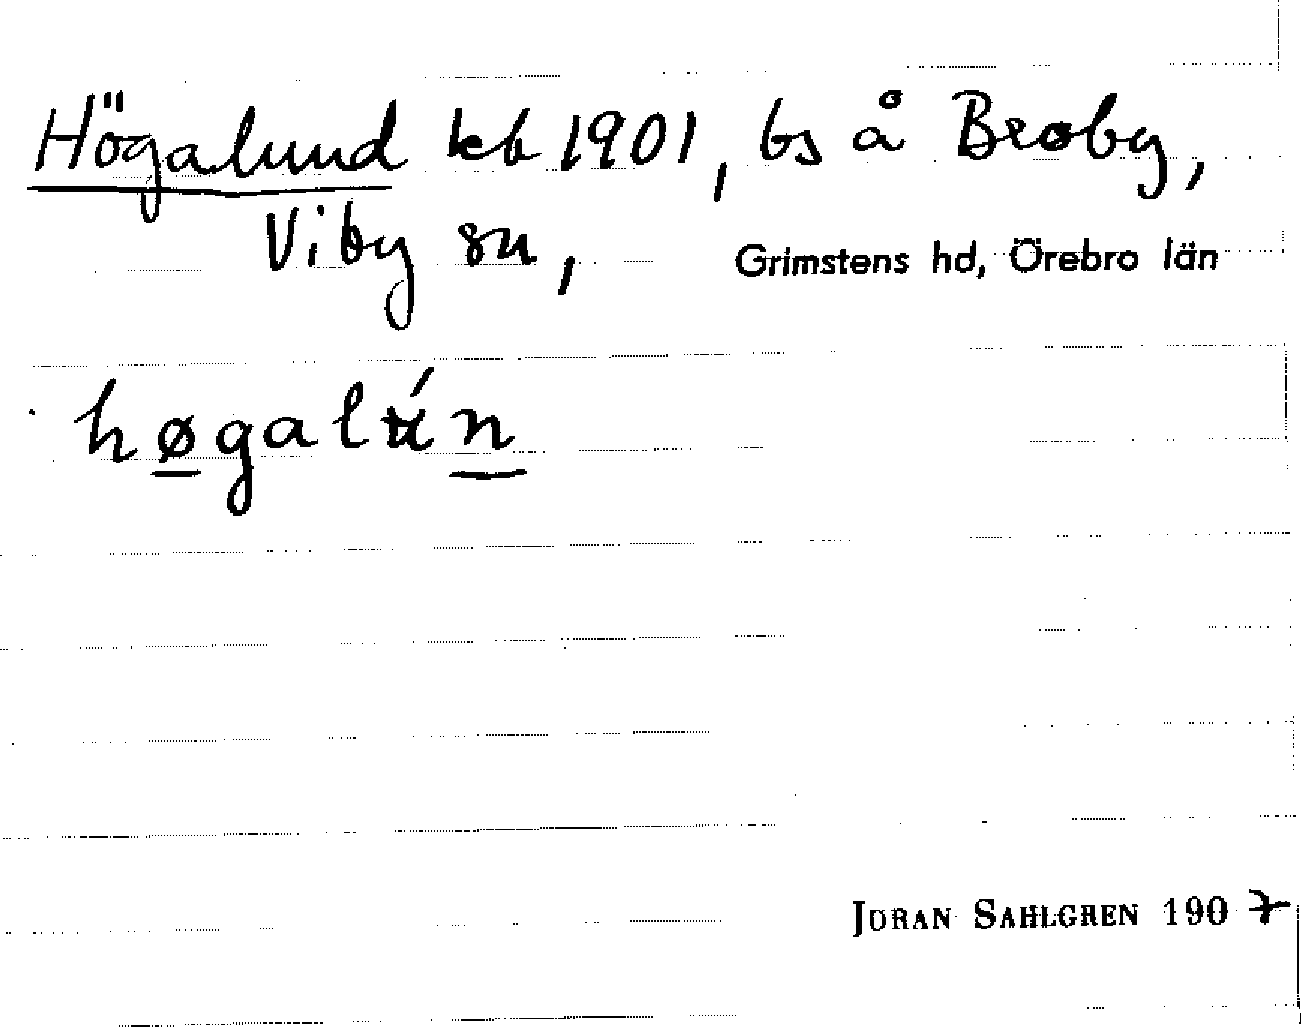 Högalund kb 1901, bs å Broby,
Viby sn, Grimstens hd, Örebro län
høgalún
JÖRAN SAHLGREN 1907